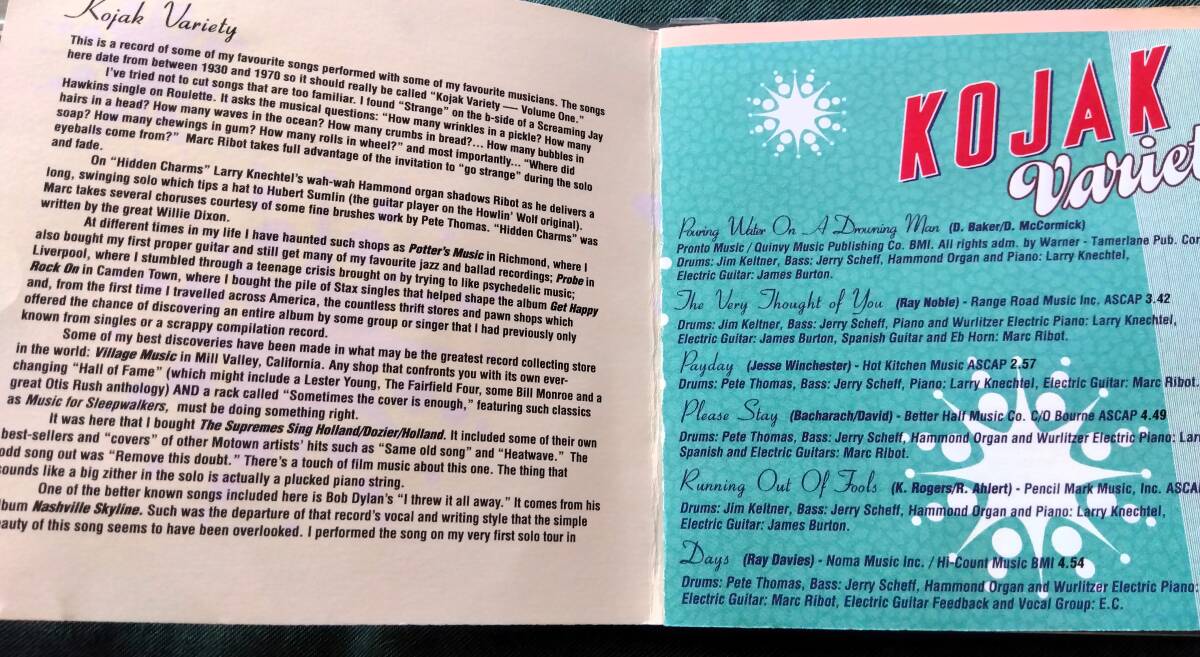 Kojak Variety
This is a record of some of my favourite songs performed with some of my favourite musicians. The songs
here date from between 1930 and 1970 so it should really be called "Kojak Variety — Volume One."
I've tried not to cut songs that are too familiar. I found "Strange" on the b-side of a Screaming Jay
Hawkins single on Roulette. It asks the musical questions: "How many wrinkles in a pickle? How many
hairs in a head? How many waves in the ocean? How many crumbs in bread?... How many bubbles in
soap? How many chewings in gum? How many rolls in wheel?" and most importantly... "Where did
eyeballs come from?" Marc Ribot takes full advantage of the invitation to "go strange" during the solo
and fade.
On "Hidden Charms" Larry Knechtel's wah-wah Hammond organ shadows Ribot as he delivers a
long, swinging solo which tips a hat to Hubert Sumlin (the guitar player on the Howlin' Wolf original).
Marc takes several choruses courtesy of some fine brushes work by Pete Thomas. "Hidden Charms" was
written by the great Willie Dixon.
At different times in my life I have haunted such shops as Potter's Music in Richmond, where I
also bought my first proper guitar and still get many of my favourite jazz and ballad recordings; Probe in
Liverpool, where I stumbled through a teenage crisis brought on by trying to like psychedelic music;
Rock On in Camden Town, where I bought the pile of Stax singles that helped shape the album Get Happy
and, from the first time I travelled across America, the countless thrift stores and pawn shops which
offered the chance of discovering an entire album by some group or singer that I had previously only
known from singles or a scrappy compilation record.
Some of my best discoveries have been made in what may be the greatest record collecting store
in the world: Village Music in Mill Valley, California. Any shop that confronts you with its own ever-
changing "Hall of Fame" (which might include a Lester Young, The Fairfield Four, some Bill Monroe and a
great Otis Rush anthology) AND a rack called "Sometimes the cover is enough," featuring such classics
as Music for Sleepwalkers, must be doing something right.
It was here that I bought The Supremes Sing Holland/Dozier/Holland. It included some of their own
best-sellers and "covers" of other Motown artists' hits such as "Same old song" and "Heatwave." The
odd song out was "Remove this doubt." There's a touch of film music about this one. The thing that
sounds like a big zither in the solo is actually a plucked piano string.
One of the better known songs included here is Bob Dylan's "I threw it all away." It comes from his
lbum Nashville Skyline. Such was the departure of that record's vocal and writing style that the simple
auty of this song seems to have been overlooked. I performed the song on my very first solo tour in
KOJAK
Variet
Pouring Water On A Drowning Man (D. Baker/D. McCormick)
Pronto Music / Quinvy Music Publishing Co. BMI. All rights adm. by Warner - Tamerlane Pub. Cor
Drums: Jim Keltner, Bass: Jerry Scheff, Hammond Organ and Piano: Larry Knechtel,
Electric Guitar: James Burton.
The Very Thought of You (Ray Noble) - Range Road Music Inc. ASCAP 3.42
Drums: Jim Keltner, Bass: Jerry Scheff, Piano and Wurlitzer Electric Piano: Larry Knechtel,
Electric Guitar: James Burton, Spanish Guitar and Eb Horn: Marc Ribot.
Payday (Jesse Winchester) - Hot Kitchen Music ASCAP 2.57
Drums: Pete Thomas, Bass: Jerry Scheff, Piano: Larry Knechtel, Electric Guitar: Marc Ribot.
Please Stay (Bacharach/David) - Better Half Music Co. C/O Bourne ASCAP 4.49
Drums: Pete Thomas, Bass: Jerry Scheff, Hammond Organ and Wurlitzer Electric Piano: Lar
Spanish and Electric Guitars: Marc Ribot.
Running Out Of Fools (K. Rogers/R. Ahlert) - Pencil Mark Music, Inc. ASCA
Drums: Jim Keltner, Bass: Jerry Scheff, Hammond Organ and Piano: Larry Knechtel,
Electric Guitar: James Burton.
Days (Ray Davies) - Noma Music Inc. / Hi-Count Music BMI 4.54
Drums: Pete Thomas, Bass: Jerry Scheff, Hammond Organ and Wurlitzer Electric Piano:
Electric Guitar: Marc Ribot, Electric Guitar Feedback and Vocal Group: E.C.